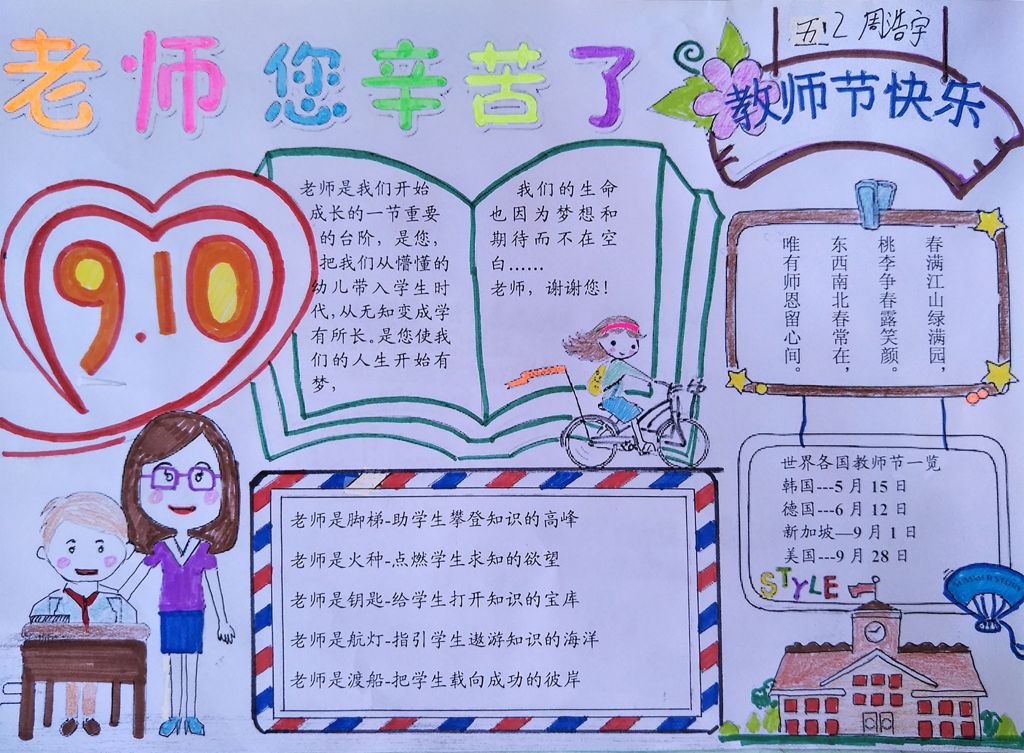 五12 周浩宇
老师您辛苦了
教师节快乐
9.10
老师是我们开始
成长的一节重要
的台阶，是您，
把我们从懵懂的
幼儿带入学生时
代，从无知变成学
有所长。是您使我
们的人生开始有
梦，
我们的生命
也因为梦想和
期待而不在空
白……
老师，谢谢您！
春满江山绿满园，
桃李争春露笑颜。
东西南北春常在，
唯有师恩留心间。
世界各国教师节一览
韩国---5月15日
德国---6月12日
新加坡—9月1日
美国---9月28日
STYLE
SUMMER STUDY
老师是脚梯-助学生攀登知识的高峰
老师是火种-点燃学生求知的欲望
老师是钥匙-给学生打开知识的宝库
老师是航灯-指引学生遨游知识的海洋
老师是渡船-把学生载向成功的彼岸